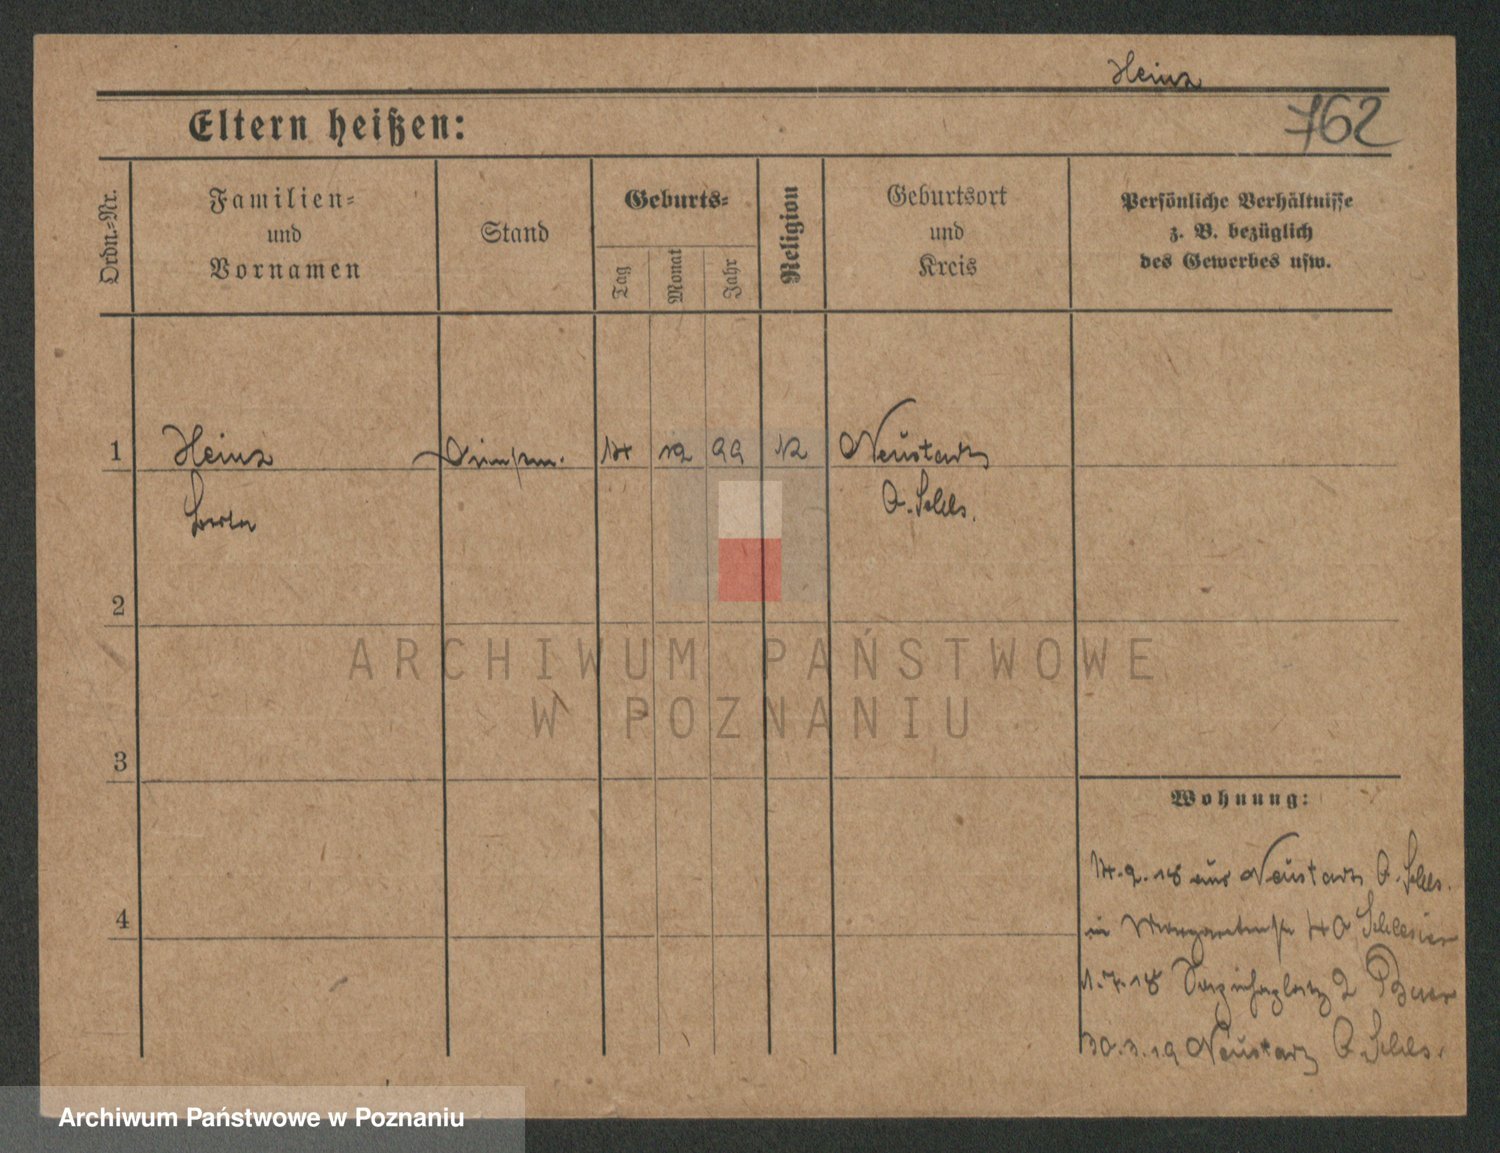 Heinz
762
Eltern heißen:
Ordn.-Nr.
Familien-
und
Vornamen
Stand
Geburts-
Tag
Monat
Jahr
Religion
Geburtsort
und
Kreis
Persönliche Verhältnisse
z. B. bezüglich
des Gewerbes usw.
1
Heinz
14
12
99
Neustadt
O. Schles.
2
ARCHIWUM PAŃSTWOWE
W POZNANIU
3
Wohnung:
14.2.18 aus Neustadt O. Schles.
in 40 Schlesier
4
1.7.18 2
30.3.19 Neustadt O. Schles.
Archiwum Państwowe w Poznaniu